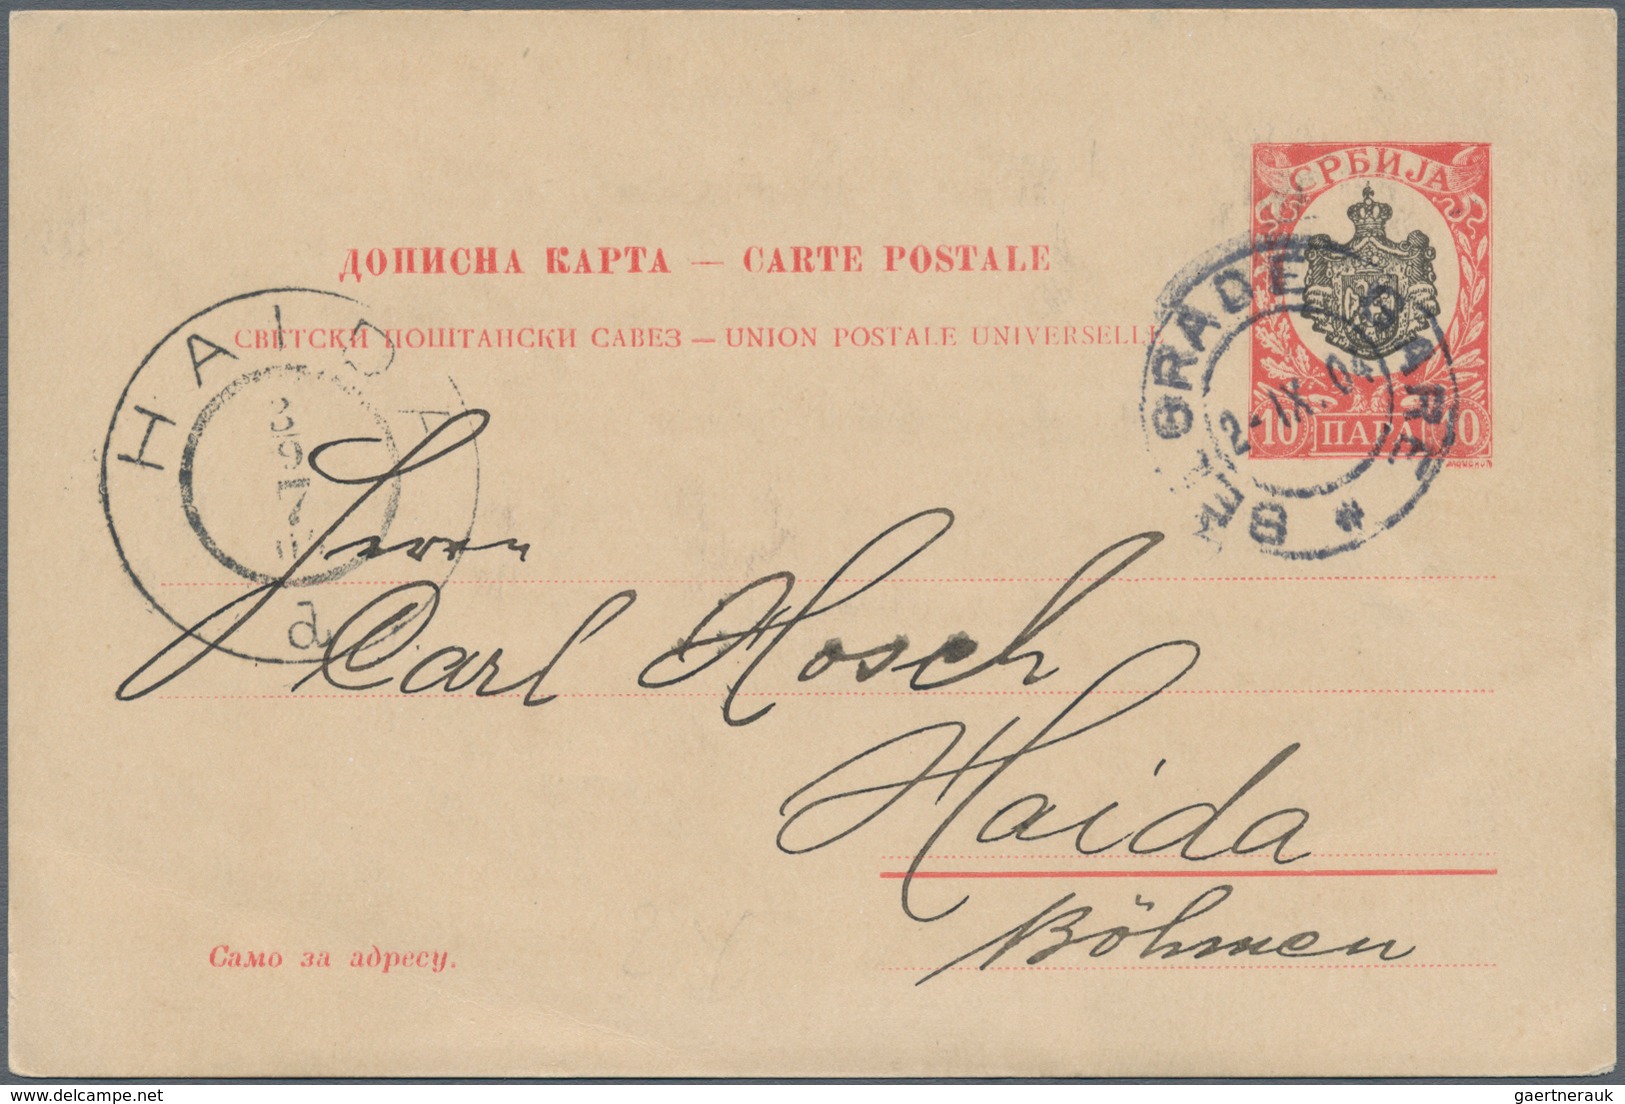 СРБИЈА
ДОПИСНА КАРТА — CARTE POSTALE
СВЕТСКИ ПОШТАНСКИ САВЕЗ — UNION POSTALE UNIVERSELLE
BELGRADE GARE *
2-IX.04
10 ПАРА 10
HAIDA
3 9 7
a
Herrn
Carl Hosch
Haida
Böhmen
Само за адресу.
gaertnerauk